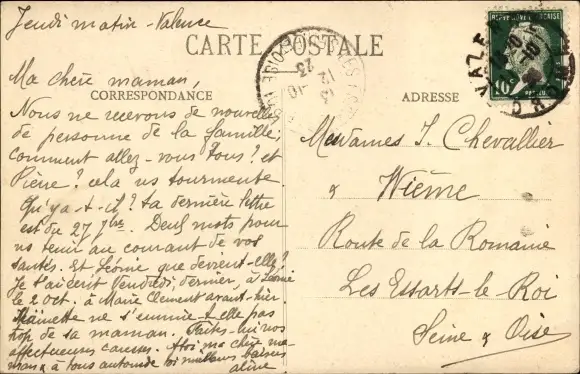 Jeudi matin - Valence
CARTE POSTALE
Ma chère maman,
CORRESPONDANCE
Nous ne recevons de nouvelles
de personne de la famille,
comment allez-vous tous ? et
Pière ? cela ns tourmente
Qu'y a-t-il ? ta dernière lettre
est du 27 7bre. Deux mots pour
ns tenir au courant de vos
santés. Et Léonie que devient-elle ?
Je t'ai écrit Vendredi dernier, à Léonie
le 2 oct. à Marie Clement avant-hier.
ne s'ennuie-t-elle pas
trop de sa maman. Faites-lui nos
affectueuses caresses. A toi ma chère ma-
man & à tous autour de toi milleurs baisers
aline
ADRESSE
Mesdames J. Chevallier
& Wième
Route de la Romanie
Les Essarts-le-Roi
Seine & Oise
10c